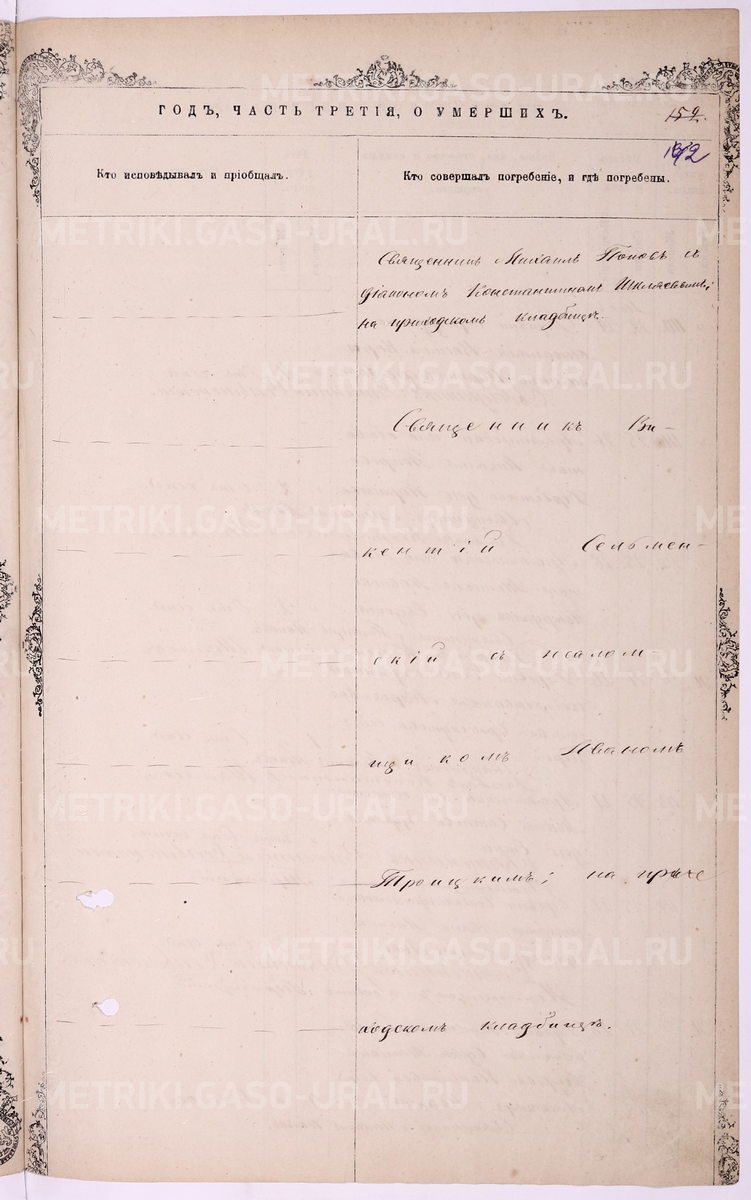 METRIKI.GASO-URAL.RU
ГОДЪ, ЧАСТЬ ТРЕТІЯ, О УМЕРШИХЪ.
152.
Кто исповѣдывалъ и пріобщалъ.
Кто совершалъ погребеніе, и гдѣ погребены.
Священникъ Михаилъ Поповъ съ
діакономъ Константиномъ
на приходскомъ кладбищѣ.
Священникъ Ви-
кентій Сельмен-
скій съ псалом
щикомъ Иваномъ
Троицкимъ; на при
ходскомъ кладбищѣ.